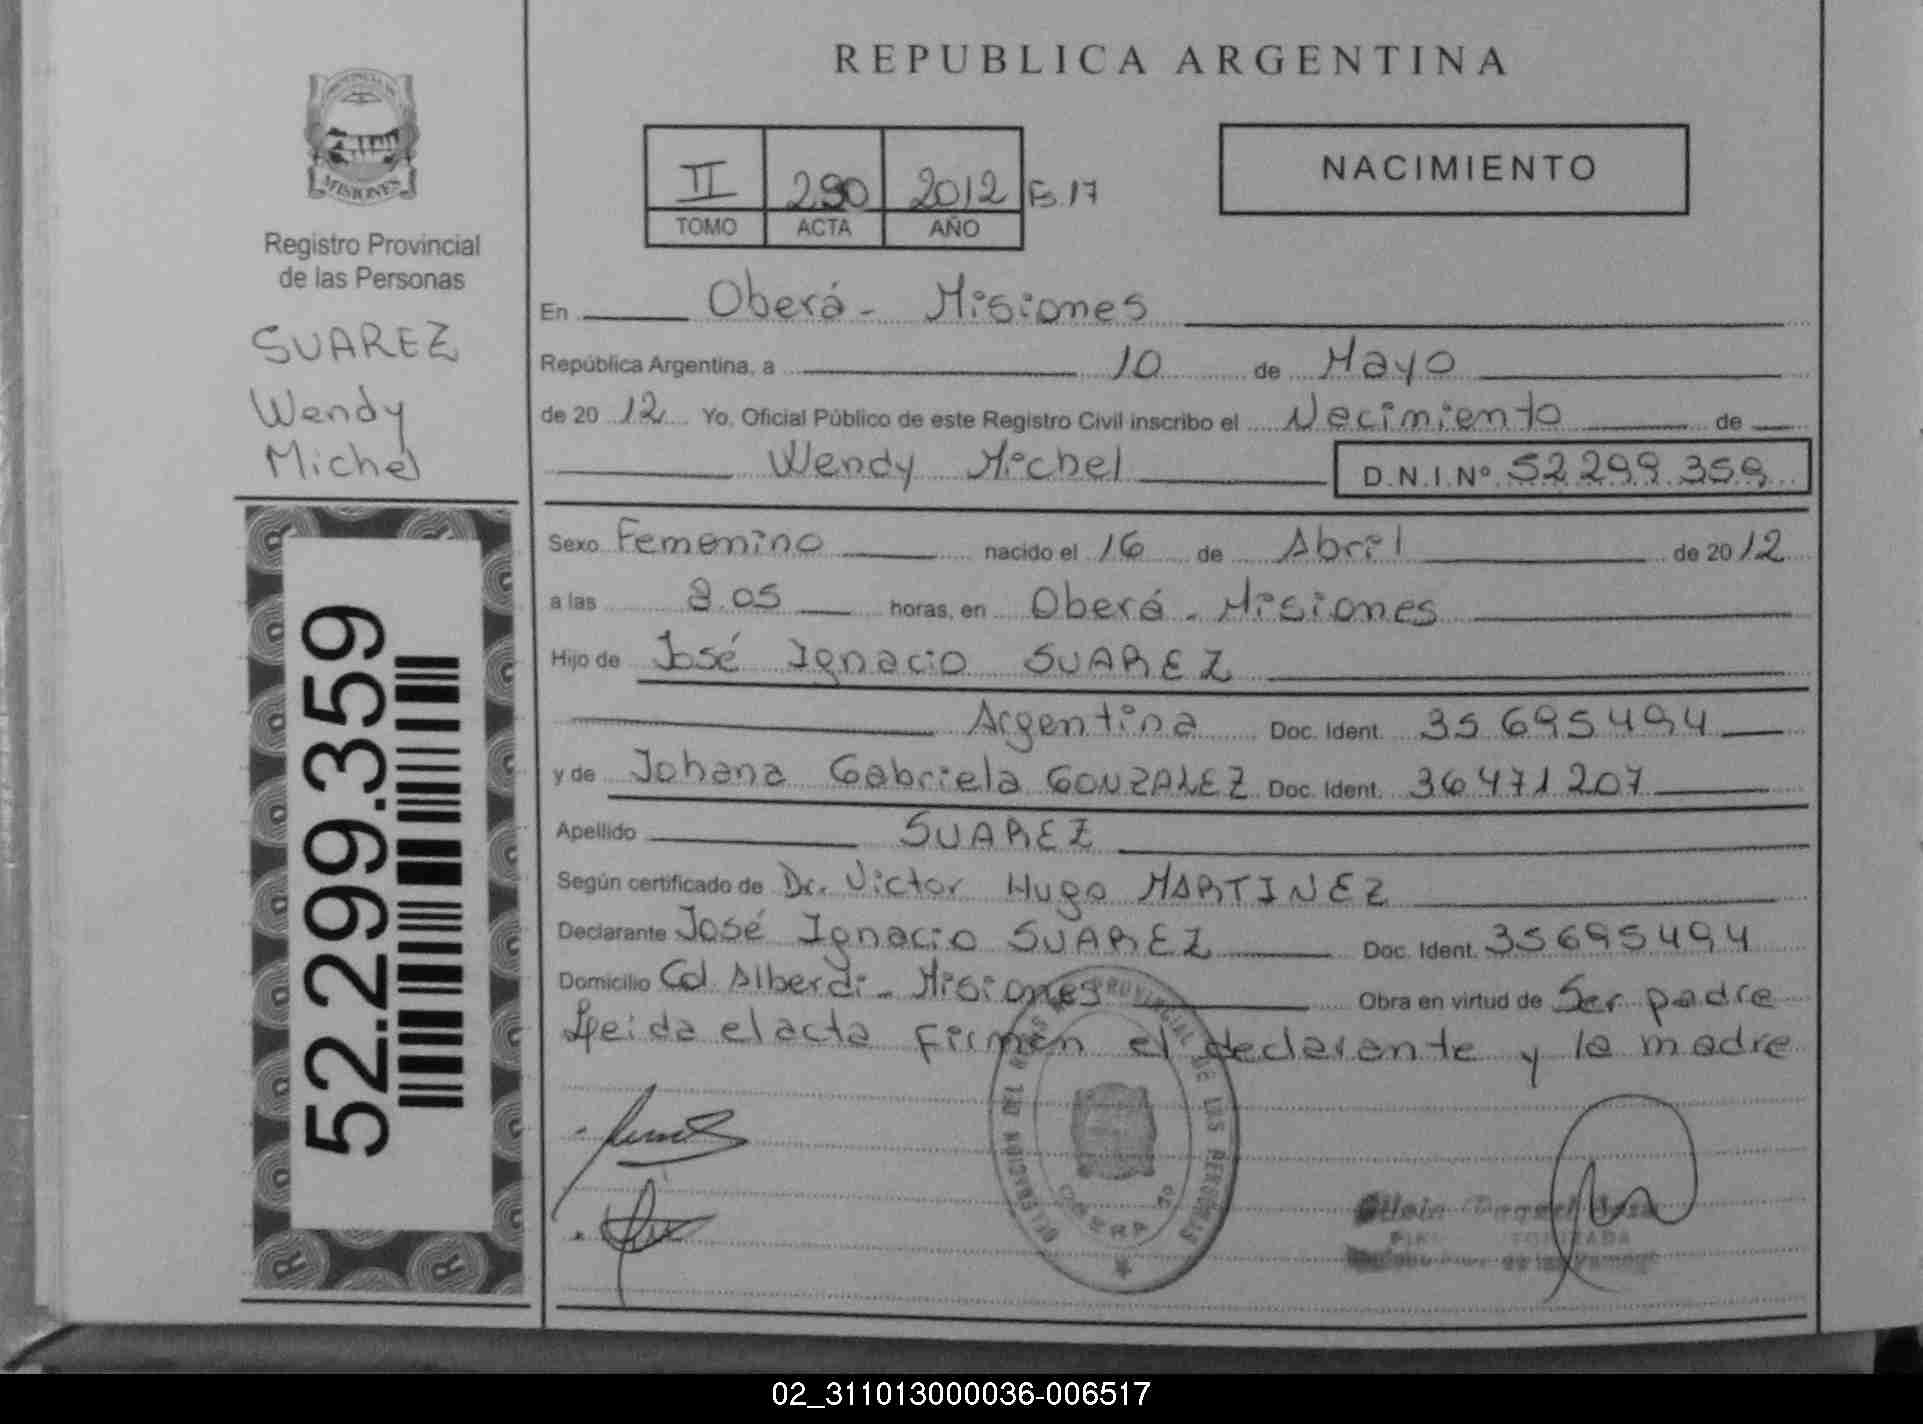 REPUBLICA ARGENTINA
MISIONES
Registro Provincial
de las Personas
SUAREZ
Wendy
Michel
52.299.359
II 290 2012 Fs. 17
TOMO ACTA AÑO
NACIMIENTO
En Oberá - Misiones
República Argentina, a 10 de Mayo
de 20 12 Yo, Oficial Público de este Registro Civil inscribo el Necimiento de
Wendy Michel D.N.I.Nº 52 299 359
Sexo Femenino nacido el 16 de Abril de 20 12
a las 8.05 horas, en Oberá - Misiones
Hijo de José Ignacio SUAREZ
Argentina Doc. Ident. 35 695 494
y de Johana Gabriela GONZALEZ Doc. Ident. 36 471 207
Apellido SUAREZ
Según certificado de Dr. Victor Hugo MARTINEZ
Declarante José Ignacio SUAREZ Doc. Ident. 35 695 494
Domicilio Col. Alberdi - Misiones Obra en virtud de Ser padre
Leida el acta firman el declarante y la madre
PROVINCIAL DE LAS PERSONAS
DELEGACION
OBERA
02_311013000036-006517